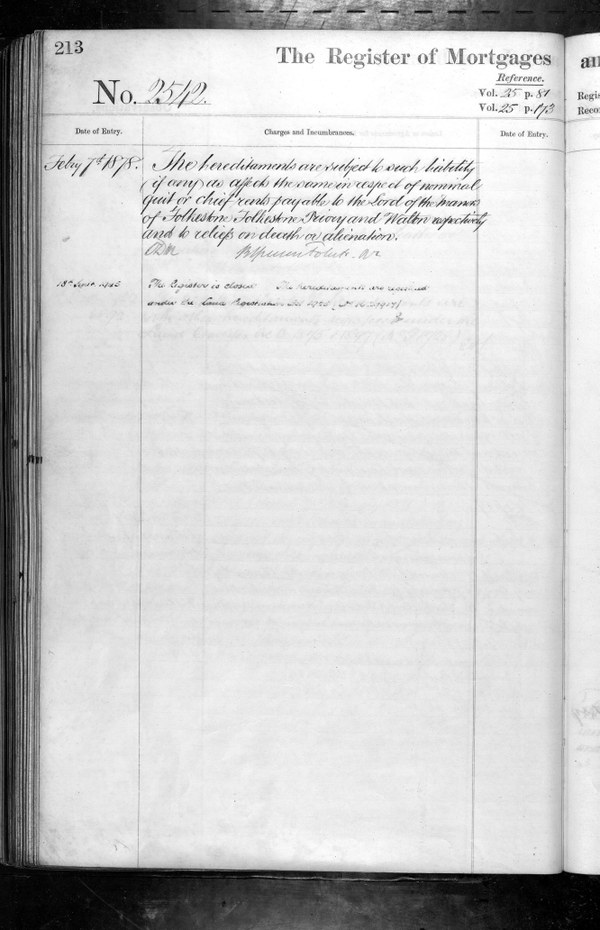 213
The Register of Mortgages
Reference.
No. 2542.
Vol. 25 p. 81
Vol. 25 p. 173
Date of Entry.
Charges and Incumbrances.
Date of Entry.
Feby 7th 1878.
The hereditaments are subject to such liability
(if any) as affects the same in respect of nominal
quit or chief rents payable to the Lord of the Manors
of Folkestone Folkestone Priory and Walton respectively
and to reliefs on death or alienation.
18th Sept.
The Register is closed The hereditaments are registered
under the Land Registration Act 1925
an
Regis
Recor